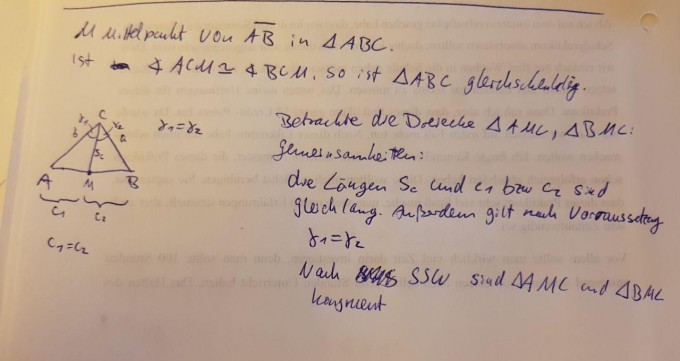 M Mittelpunkt von AB in △ABC.
Ist ∢ACM ≅ ∢BCM, so ist △ABC gleichschenklig.
C
γ₁ γ₂
b a
Sc
γ₁=γ₂
A M B
C₁ C₂
C₁=C₂
Betrachte die Dreiecke △AMC, △BMC:
Gemeinsamkeiten:
die Längen Sc und c₁ bzw c₂ sind
gleichlang. Außerdem gilt nach Vorraussetzung
γ₁=γ₂
Nach SSW sind △AMC und △BMC
kongruent